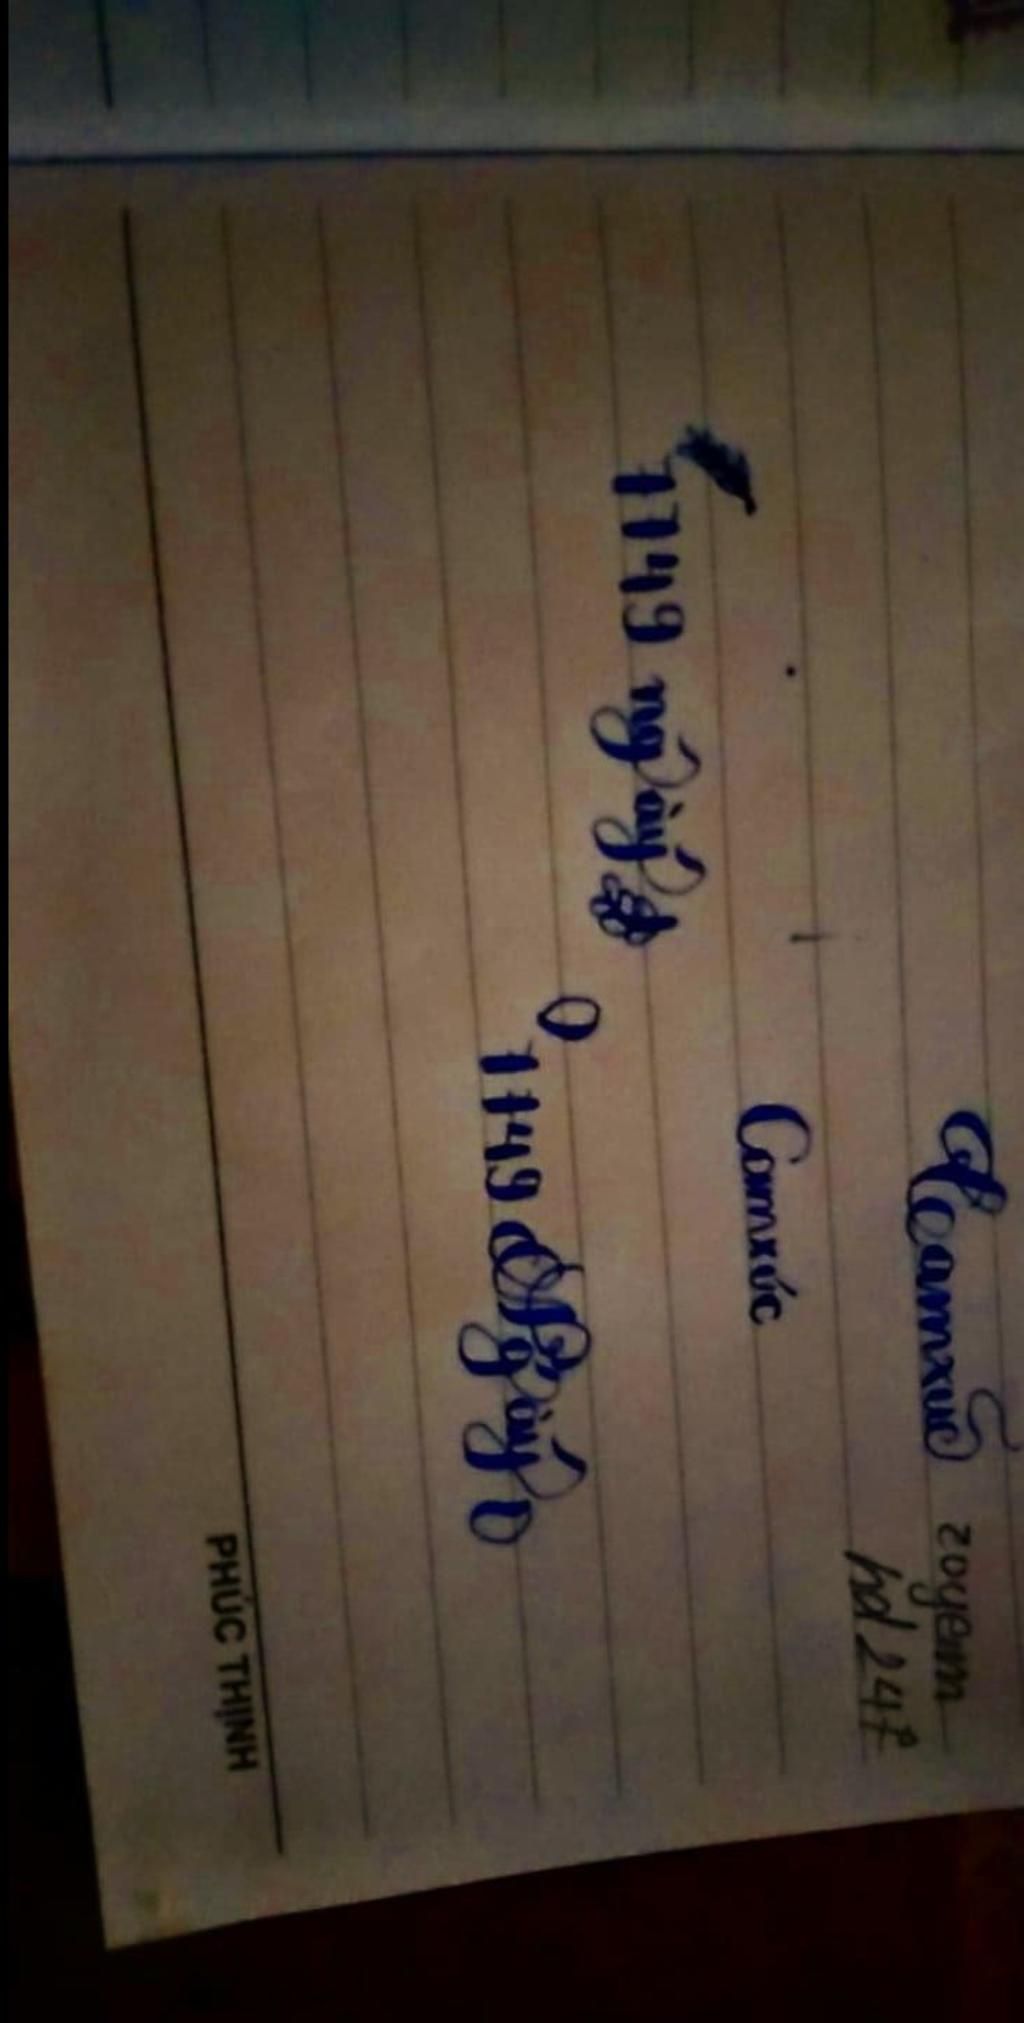 Camxuc zoyem
hd247
Camxúc
1149 ngày
0
1149 Ngày 0
PHÚC THỊNH